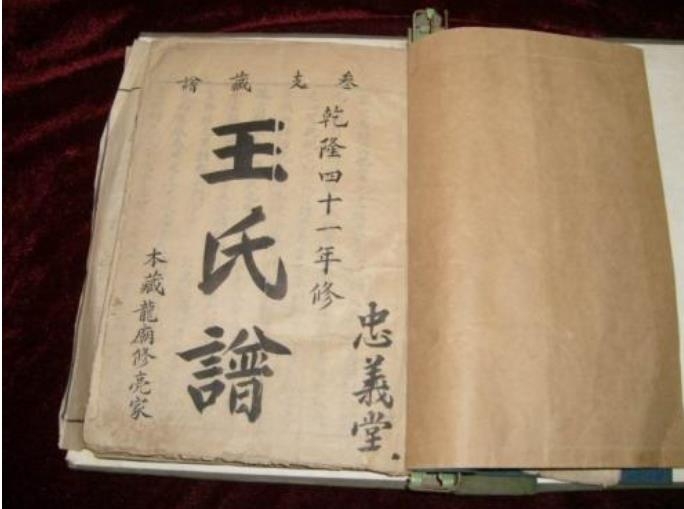 叁支藏譜
乾隆四十一年修
忠義堂.
王氏譜
本藏龍廟修亮家